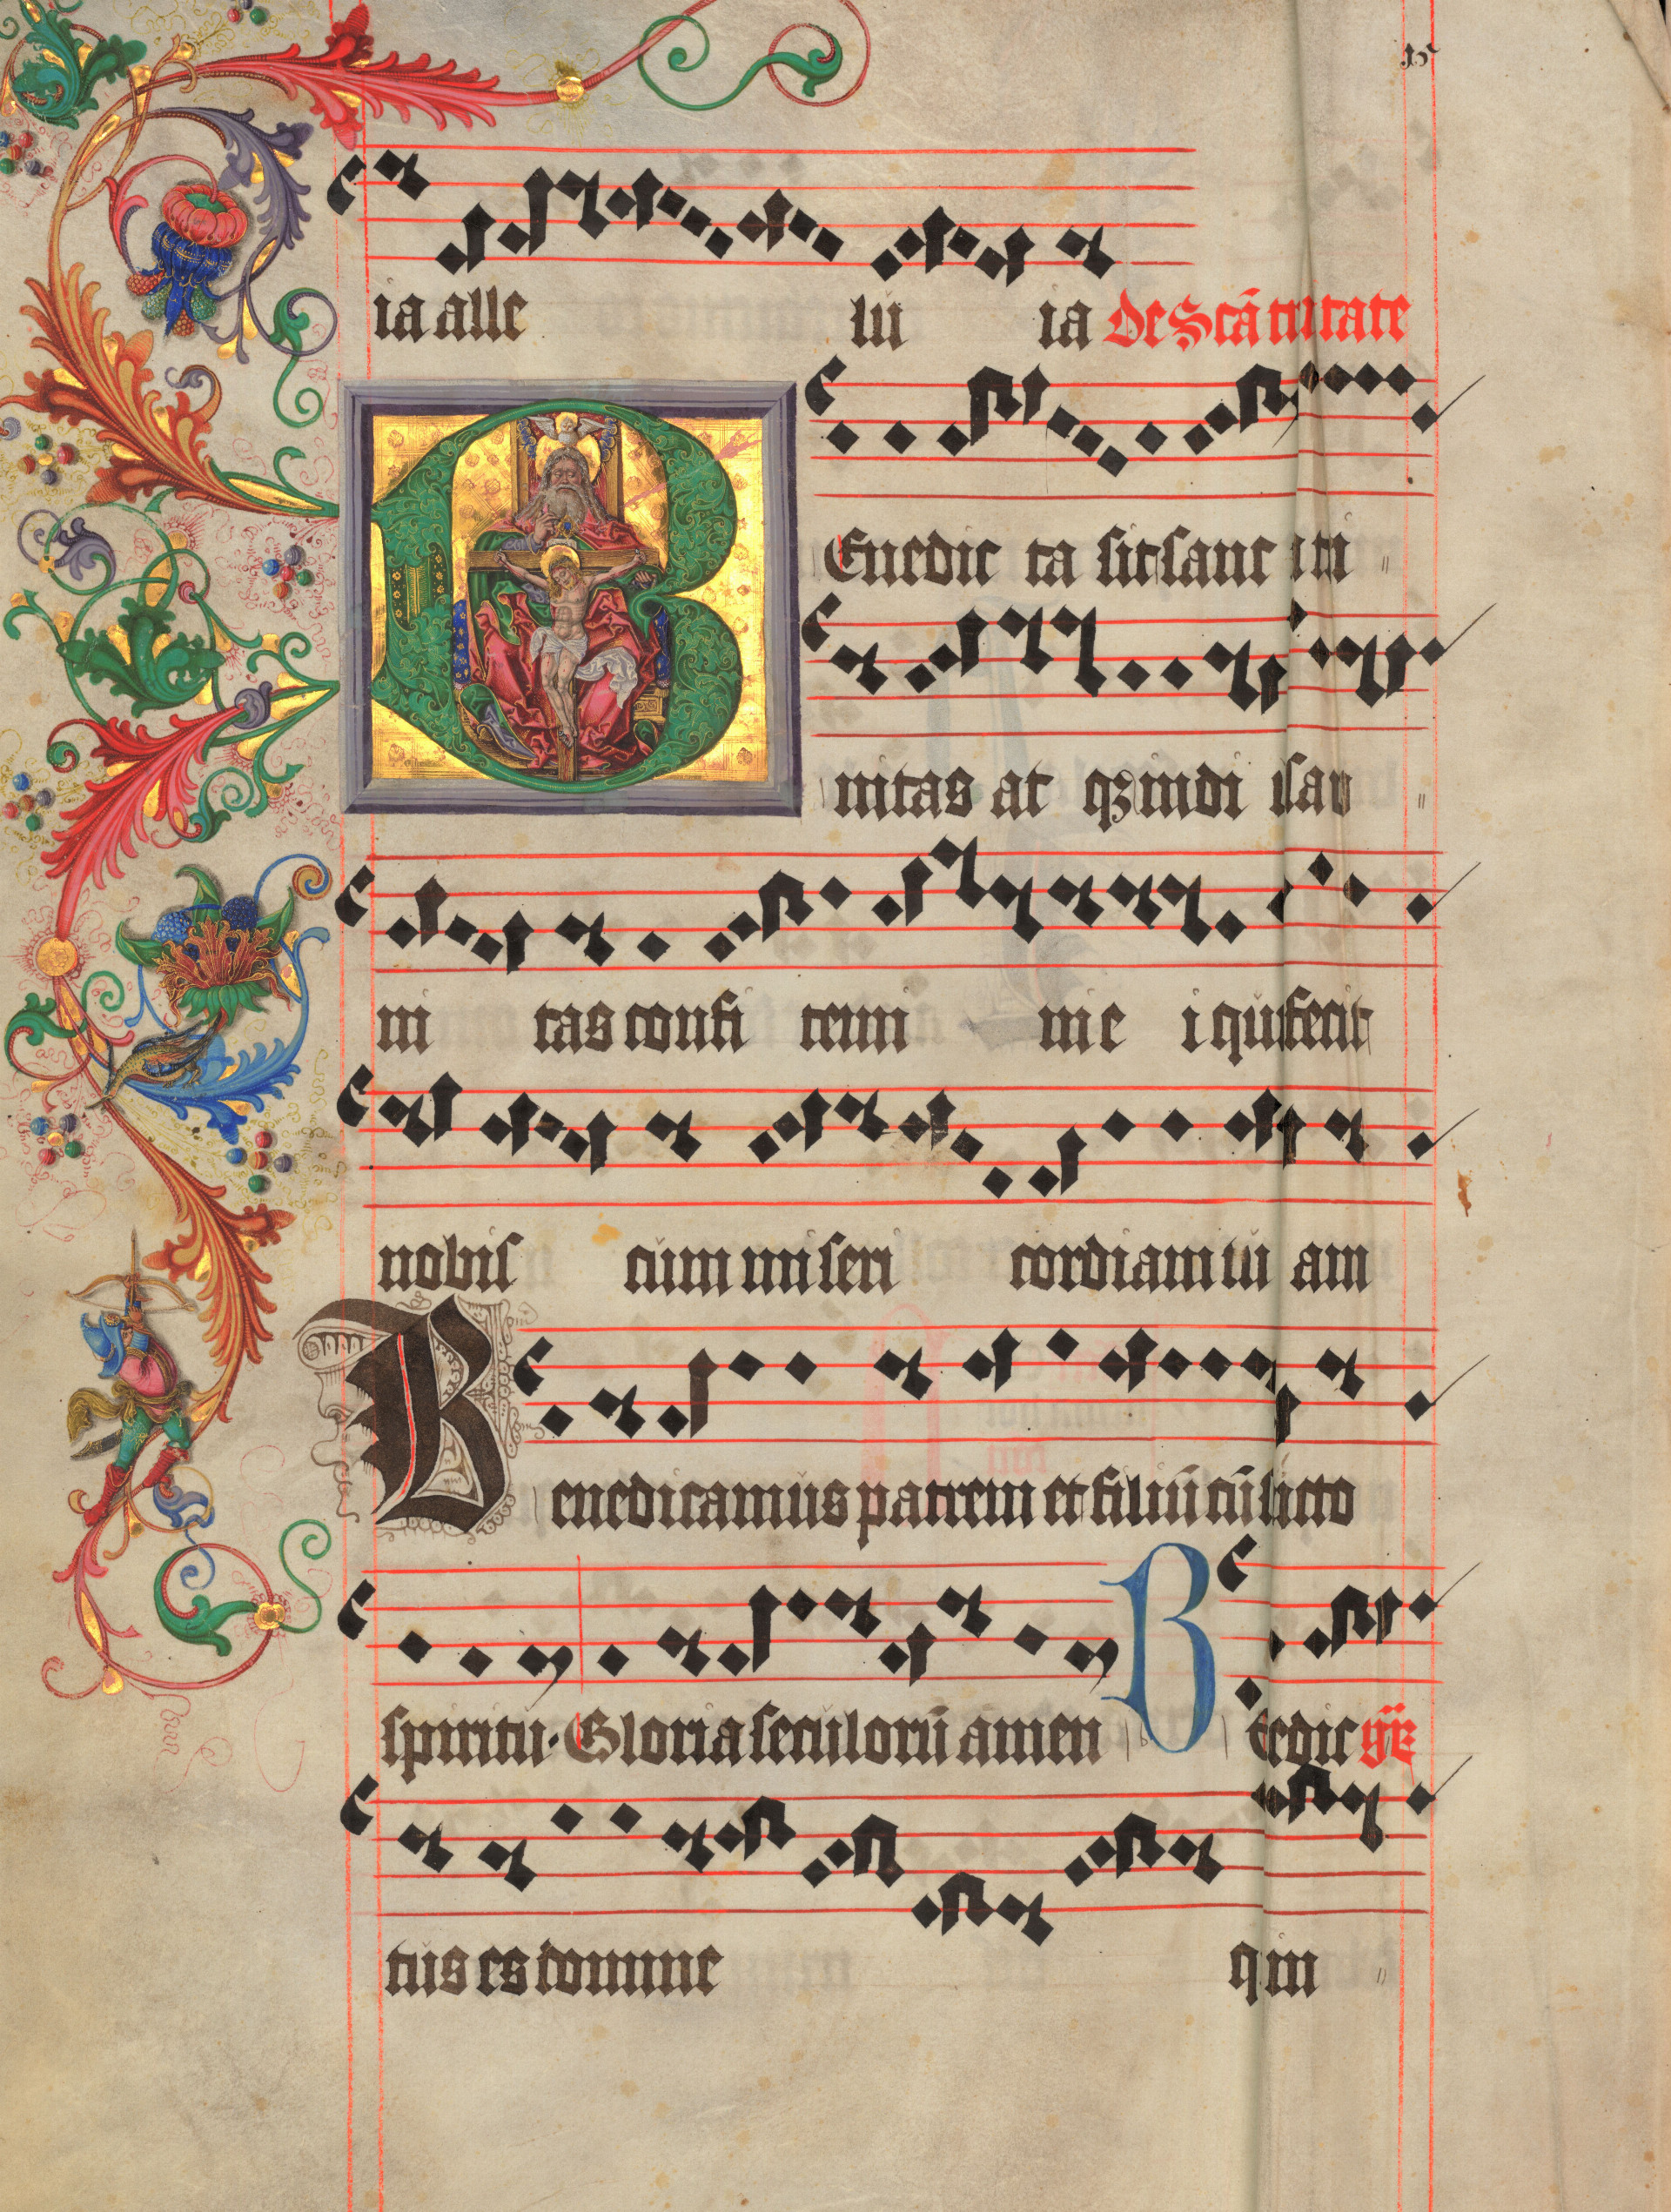 ia alle lu ia de Scā tnitate
Benedic ta sit sanc tri
nitas at qꝫ indi i sau
ni tas confi temi mie i qui fecit
nobis cum miseri cordiam su am
Benedicamus patrem et filiū cū scto
spiritu· Gloria seculorū amen Bedic gͬ
tus es domine qui in